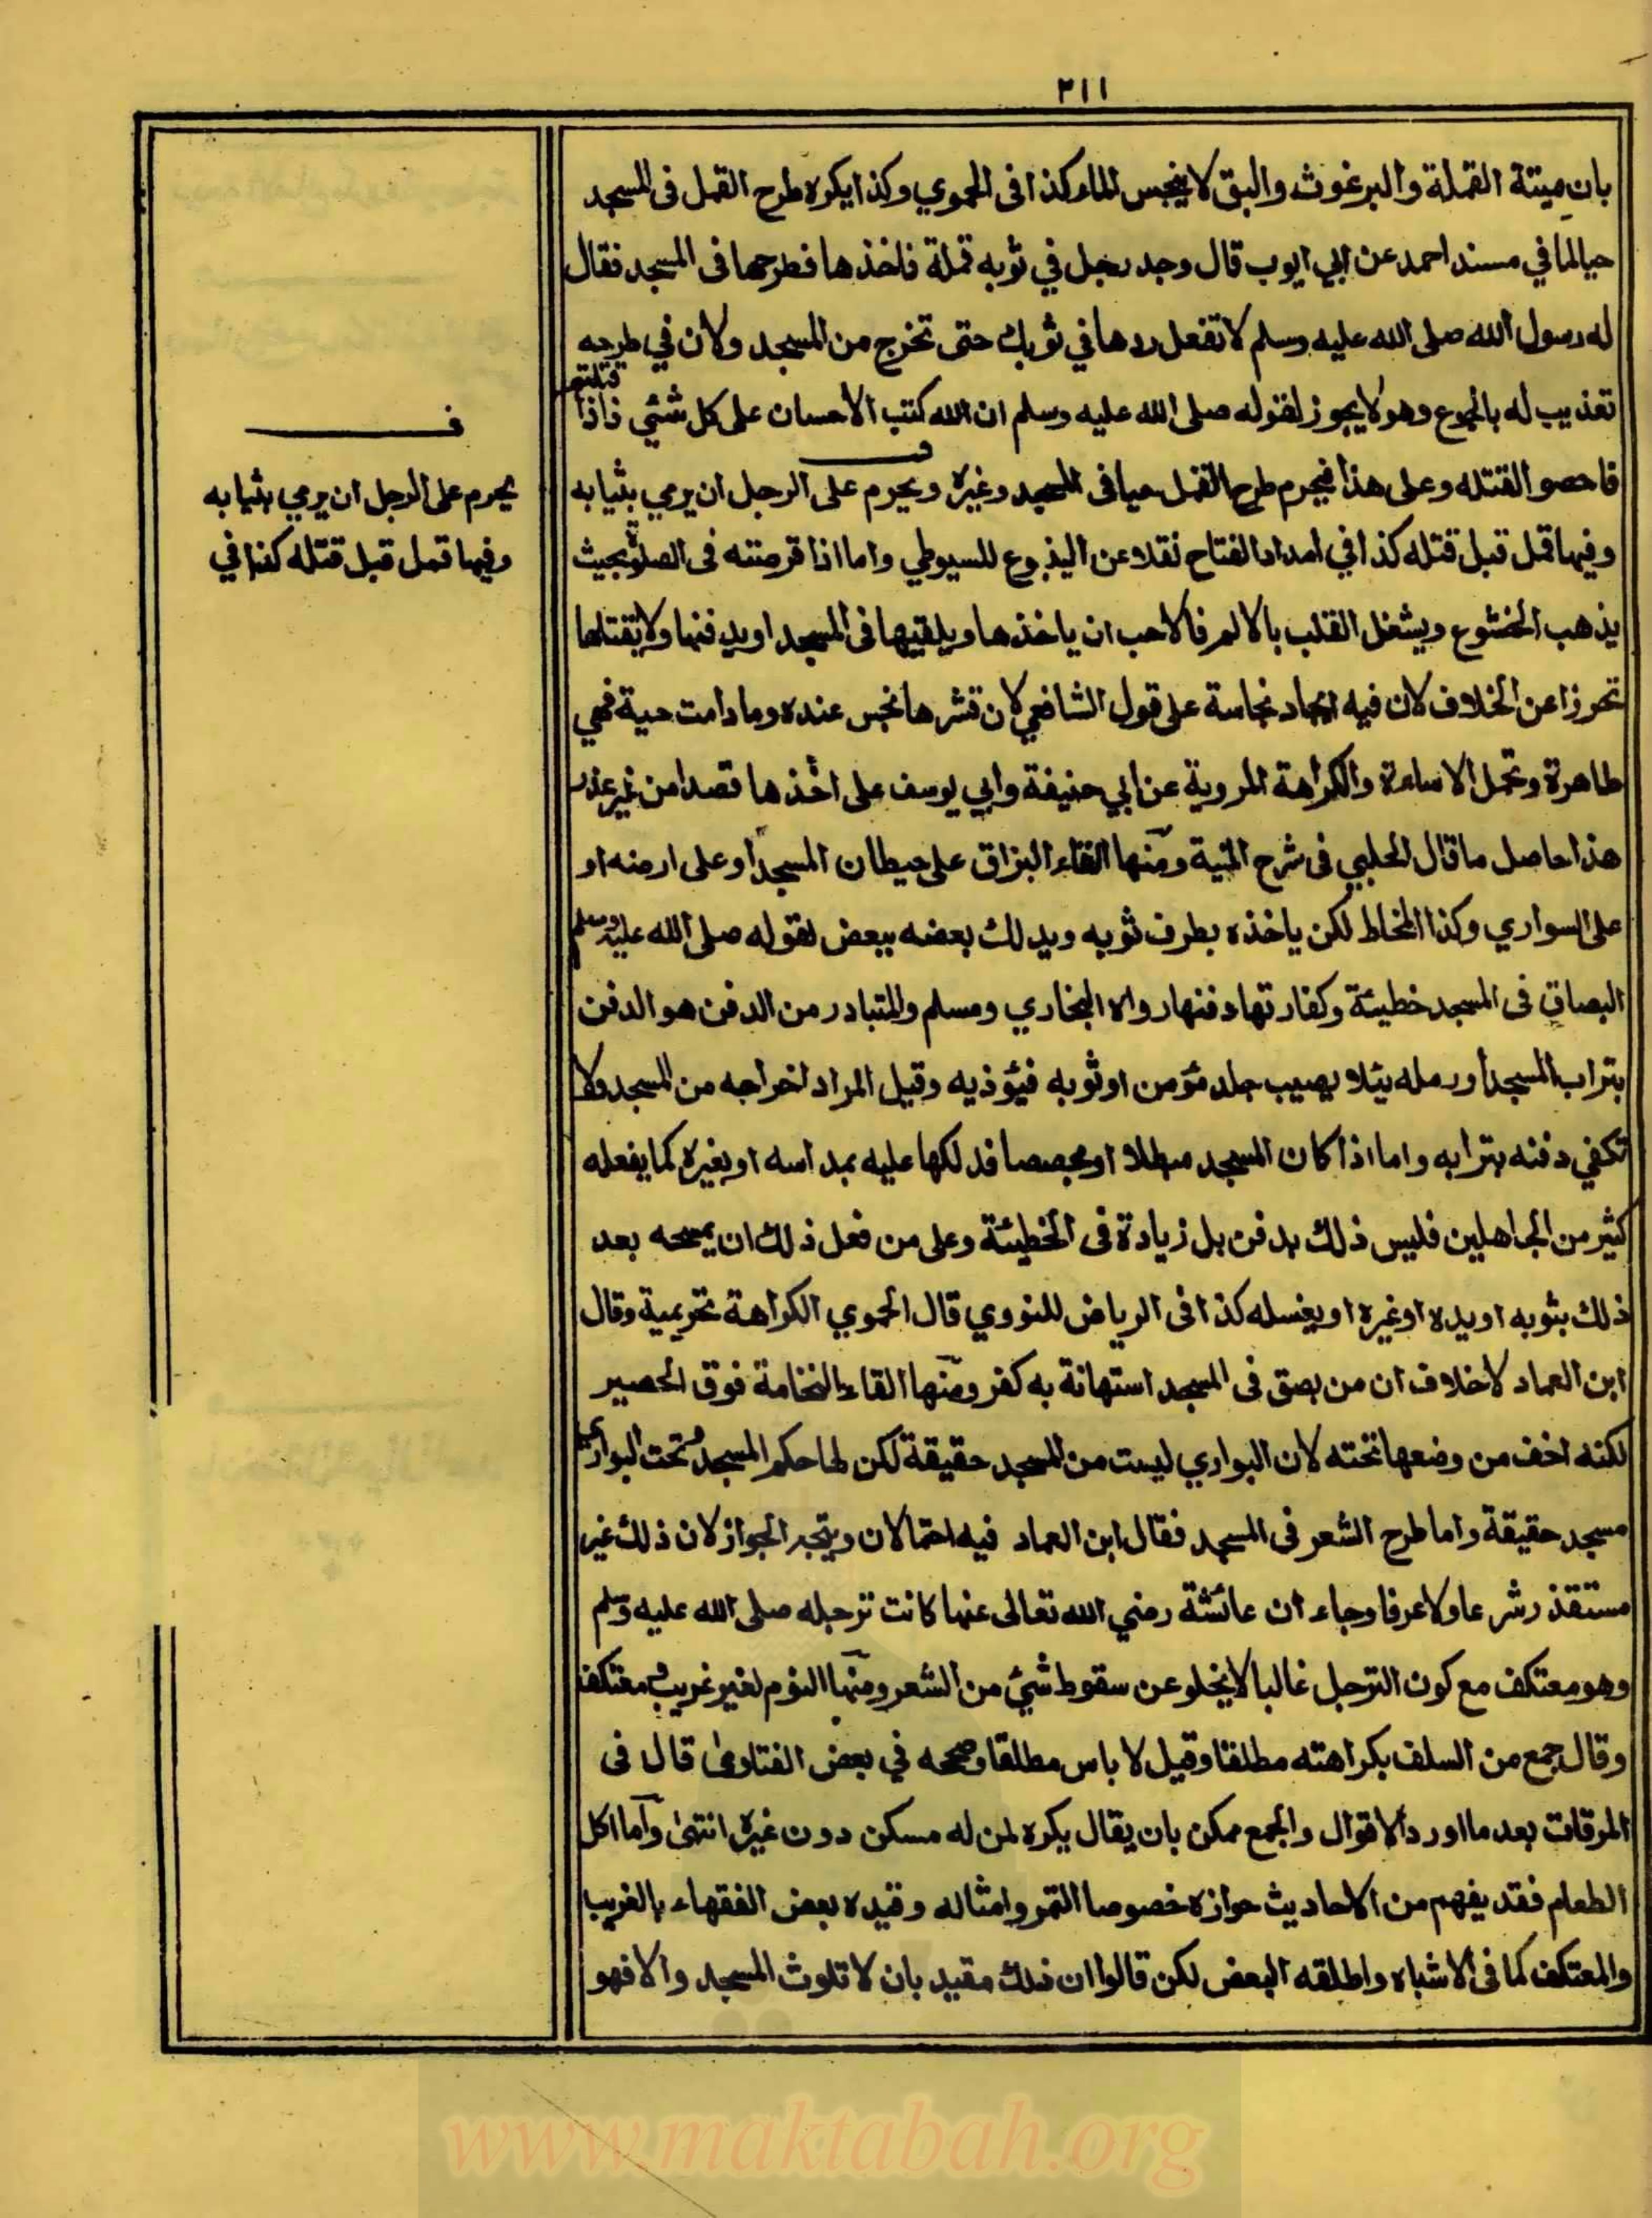 ٣١١
بان ميتة القملة والبرغوث والبق لا ينجس الماء كذا فى الحموي وكذا يكره طرح القمل فى المسجد
حيا لما في مسند احمد عن ابي ايوب قال وجد رجل في ثوبه قملة فاخذها فطرحها فى المسجد فقال
له رسول الله صلى الله عليه وسلم لا تفعل ردها في ثوبك حتى تخرج من المسجد ولان في طرحه
تعذيب له بالجوع وهو لا يجوز لقوله صلى الله عليه وسلم ان الله كتب الاحسان على كل شئي فاذا قتلتم
فاحصوا القتله وعلى هذا فيحرم طرح القمل حيا فى المسجد وغيره ويحرم على الرجل ان يرمي بثيابه
وفيها قمل قبل قتله كذا في امداد الفتاح نقلا عن الينبوع للسيوطي واما اذا قرصته فى الصلوة بحيث
يذهب الخشوع ويشغل القلب بالالم فالاحب ان ياخذها ويلقيها فى المسجد او يدفنها ولا يقتلها
تحرزا عن الخلاف لان فيه ايجاد نجاسة على قول الشافعي لان قشرها نجس عنده وما دامت حية فهي
طاهرة وتحمل الاساءة والكراهة المروية عن ابي حنيفة وابي يوسف على اخذها قصدا من غير عذر
هذا حاصل ما قال الحلبي فى شرح المنية ومنها القاء البزاق على حيطان المسجد او على ارضه او
على السواري وكذا المخاط لكن ياخذه بطرف ثوبه ويدلك بعضه ببعض لقوله صلى الله عليه وسلم
البصاق فى المسجد خطيئة وكفارتها دفنها رواه البخاري ومسلم والمتبادر من الدفن هو الدفن
بتراب المسجد او رمله يئلا يصيب جلد مؤمن او ثوبه فيؤذيه وقيل المراد اخراجه من المسجد ولا
تكفي دفنه بترابه واما اذا كان المسجد مبطلا او مجصصا فدلكها عليه بمداسه او بغيره كما يفعله
كثير من الجاهلين فليس ذلك بدفن بل زيادة فى الخطيئة وعلى من فعل ذلك ان يمسحه بعد
ذلك بثوبه او يده او غيره او يغسله كذا فى الرياض للنووي قال الحموي الكراهة تحريمية وقال
ابن العماد لا خلاف ان من بصق فى المسجد استهانة به كفر ومنها القاء النخامة فوق الحصير
لكنه اخف من وضعها تحته لان البواري ليست من المسجد حقيقة لكن لها حكم المسجد وتحت البواري
مسجد حقيقة واما طرح الشعر فى المسجد فقال ابن العماد فيه احتمالان ويتجه الجواز لان ذلك غير
مستقذر شرعا ولا عرفا وجاء ان عائشة رضي الله تعالى عنها كانت ترجله صلى الله عليه وسلم
وهو معتكف مع كون الترجل غالبا لا يخلو عن سقوط شئي من الشعر ومنها النوم لغير غريب ومعتكف
وقال جمع من السلف بكراهته مطلقا وقيل لا باس مطلقا وصححه في بعض الفتاوى قال فى
المرقات بعد ما اورد الاقوال والجمع ممكن بان يقال يكره لمن له مسكن دون غيره انتهى واما اكل
الطعام فقد يفهم من الاحاديث جوازه خصوصا التمر وامثاله وقيده بعض الفقهاء بالغريب
والمعتكف كما فى الاشباه واطلقه البعض لكن قالوا ان ذلك مقيد بان لا تلوث المسجد والا فهو
ف
يحرم على الرجل ان يرمي بثيابه
وفيها قمل قبل قتله كذا في
www.maktabah.org